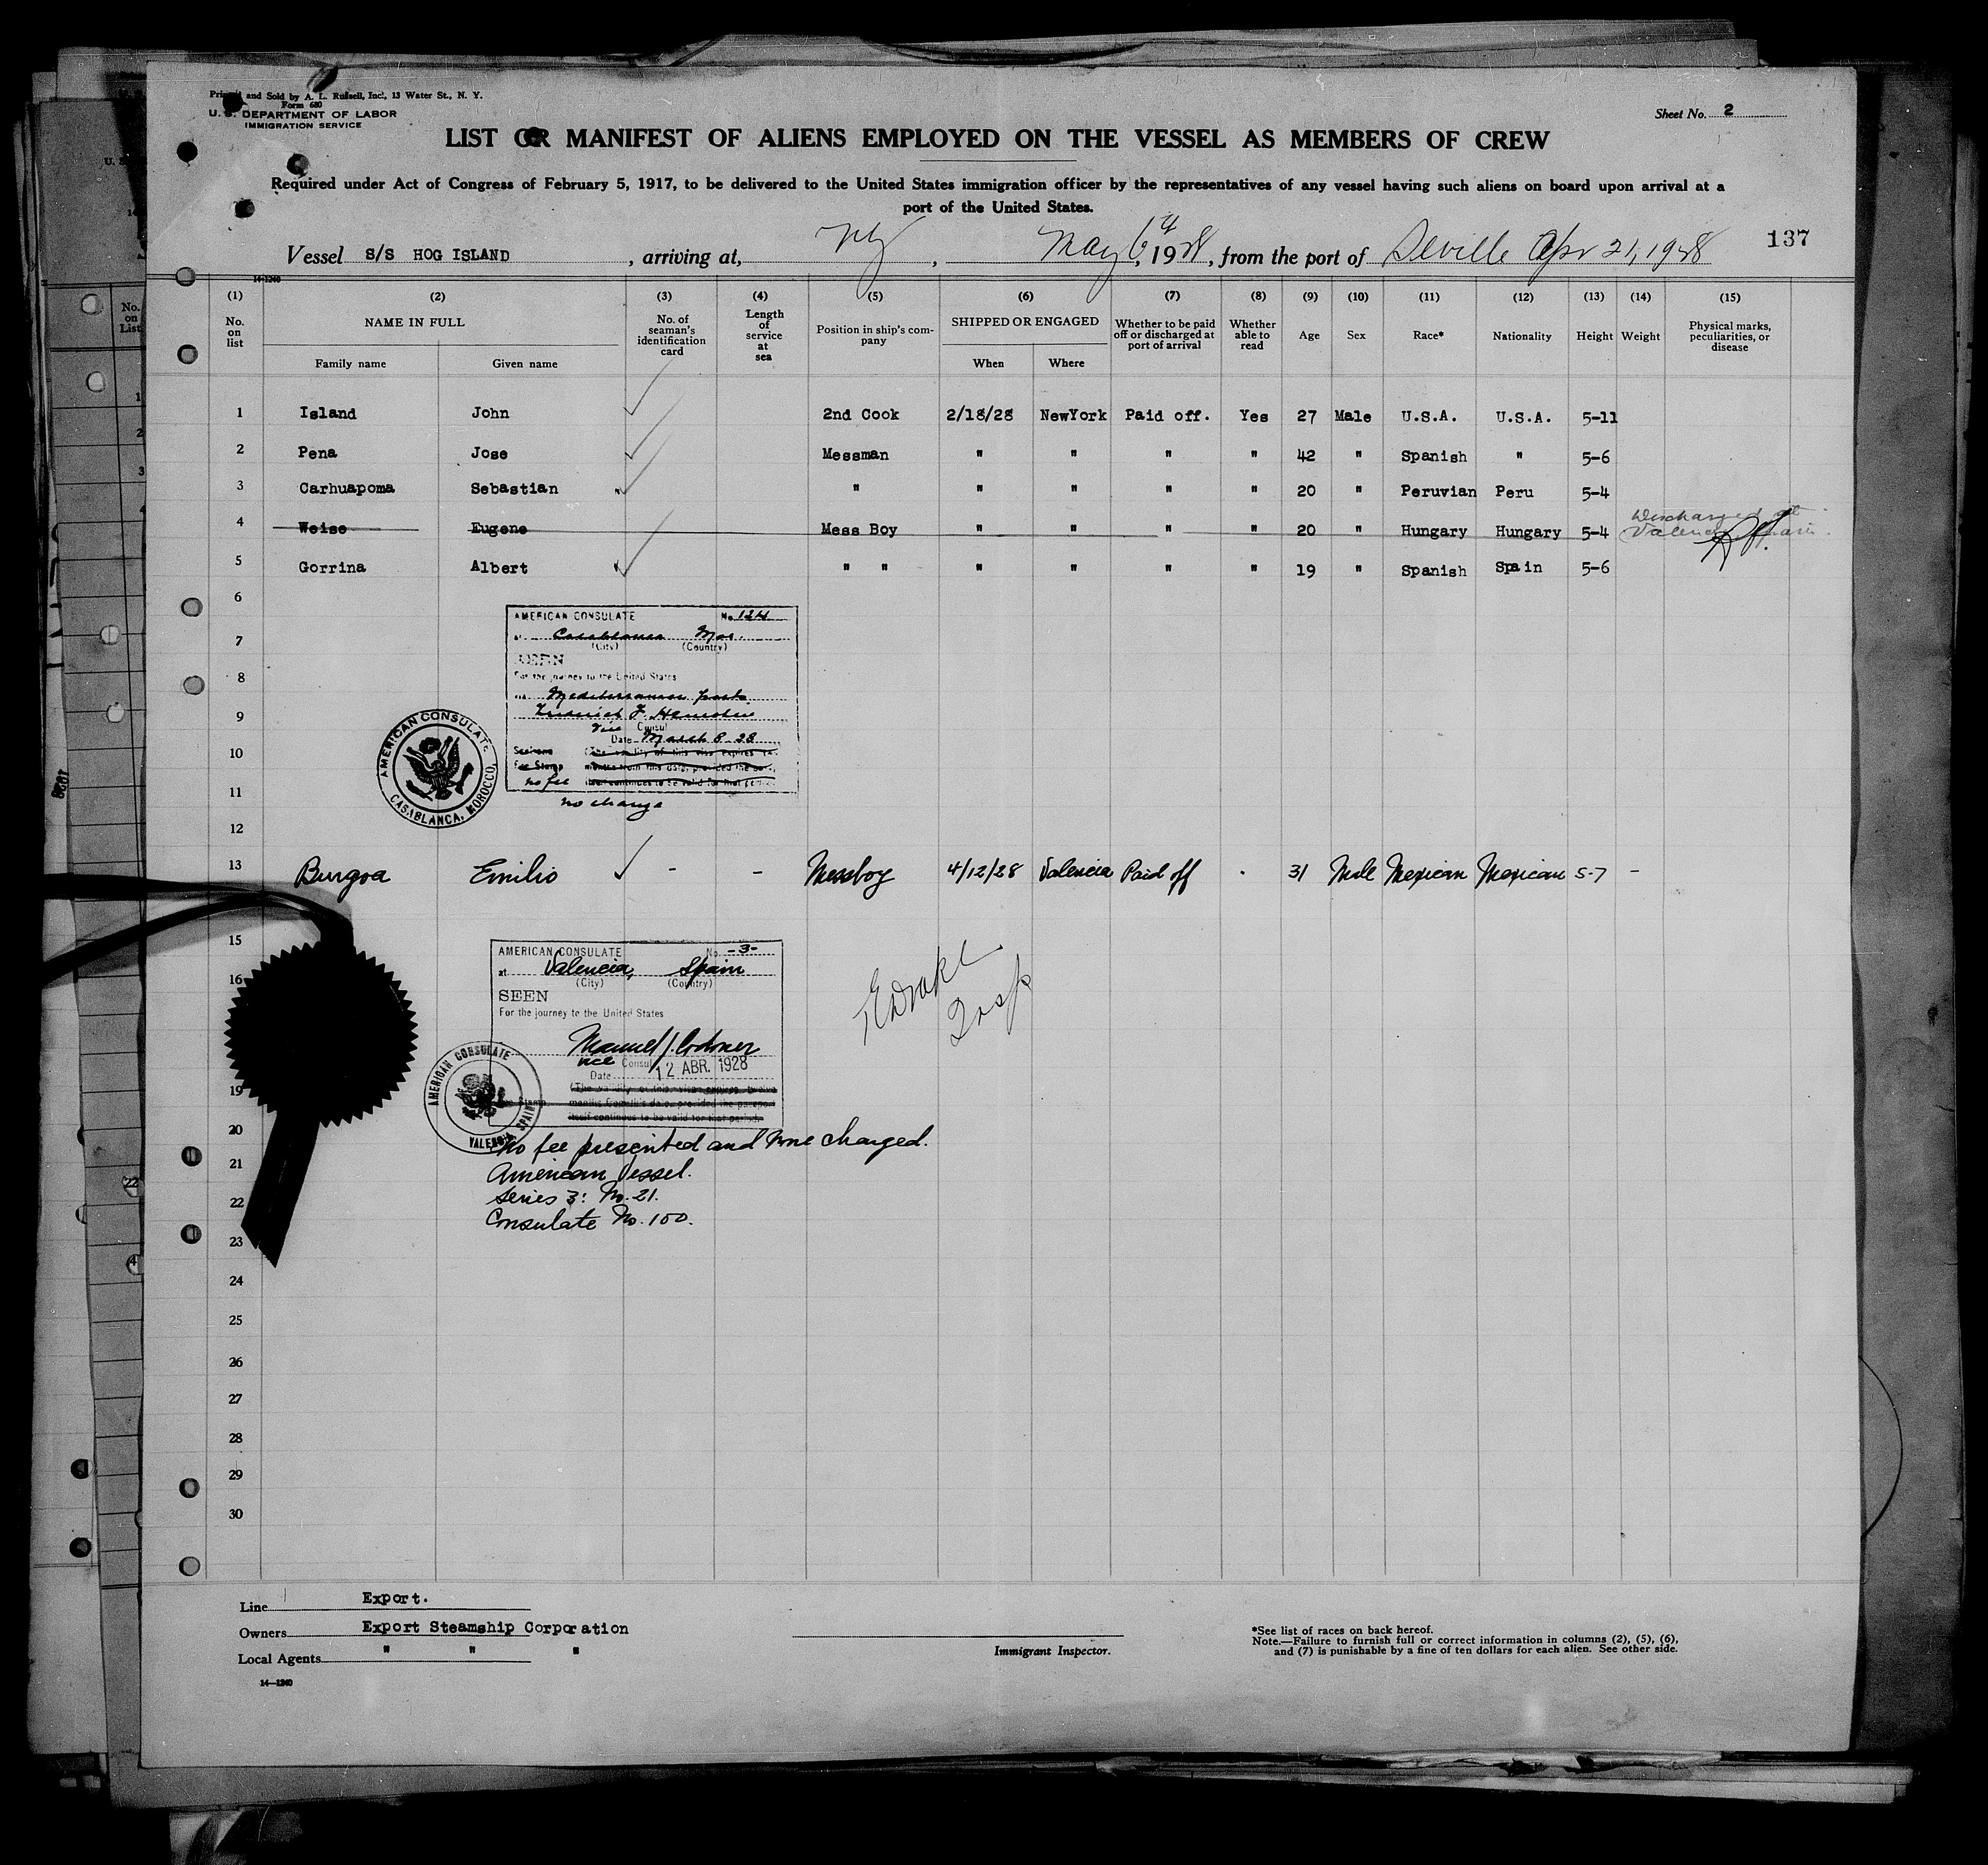 Printed and Sold by A. L. Russell, Inc., 13 Water St., N. Y.
Form 680
U. S. DEPARTMENT OF LABOR
IMMIGRATION SERVICE
Sheet No. 2
LIST OR MANIFEST OF ALIENS EMPLOYED ON THE VESSEL AS MEMBERS OF CREW
Required under Act of Congress of February 5, 1917, to be delivered to the United States immigration officer by the representatives of any vessel having such aliens on board upon arrival at a
port of the United States.
137
Vessel S/S HOG ISLAND, arriving at, NY, May 6, 1928, from the port of Seville Apr 21, 1928
14-1240
(1) (2) (3) (4) (5) (6) (7) (8) (9) (10) (11) (12) (13) (14) (15)
No. on list
NAME IN FULL
Family name Given name
No. of seaman's identification card
Length of service at sea
Position in ship's company
SHIPPED OR ENGAGED
When Where
Whether to be paid off or discharged at port of arrival
Whether able to read
Age
Sex
Race*
Nationality
Height
Weight
Physical marks, peculiarities, or disease
1 Island John 2nd Cook 2/18/28 NewYork Paid off. Yes 27 Male U.S.A. U.S.A. 5-11
2 Pena Jose Messman " " " " 42 " Spanish " 5-6
3 Carhuapoma Sebastian " " " " " 20 " Peruvian Peru 5-4
4 Weise Eugene Mess Boy " " " " 20 " Hungary Hungary 5-4 Discharged at
Valencia
5 Gorrina Albert " " " " " " 19 " Spanish Spain 5-6
6
7
8
9
10
11
12
AMERICAN CONSULATE No. 124
at Casablanca Mor.
(City) (Country)
SEEN
For the journey to the United States
via Mediterranean ports
Vice Consul
Date March 8-28
no fee
no charge
AMERICAN CONSULATE,
CASABLANCA, MOROCCO,
13 Burgoa Emilio - - Messboy 4/12/28 Valencia Paid off . 31 Male Mexican Mexican 5-7 -
15
16
19
20
21
22
23
24
25
26
27
28
29
30
AMERICAN CONSULATE No. -3-
at Valencia, Spain
(City) (Country)
SEEN
For the journey to the United States
Vice Consul
Date 12 ABR. 1928
AMERICAN CONSULATE
VALENCIA, SPAIN
No fee presented and none charged.
American Vessel.
Series 3: No. 21.
Consulate No. 100.
Insp
Line Export.
Owners Export Steamship Corporation
Local Agents " " "
14—1240
Immigrant Inspector.
*See list of races on back hereof.
Note.—Failure to furnish full or correct information in columns (2), (5), (6),
and (7) is punishable by a fine of ten dollars for each alien. See other side.